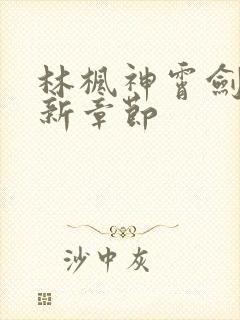 林楓神霄劍
新章節
沙中灰